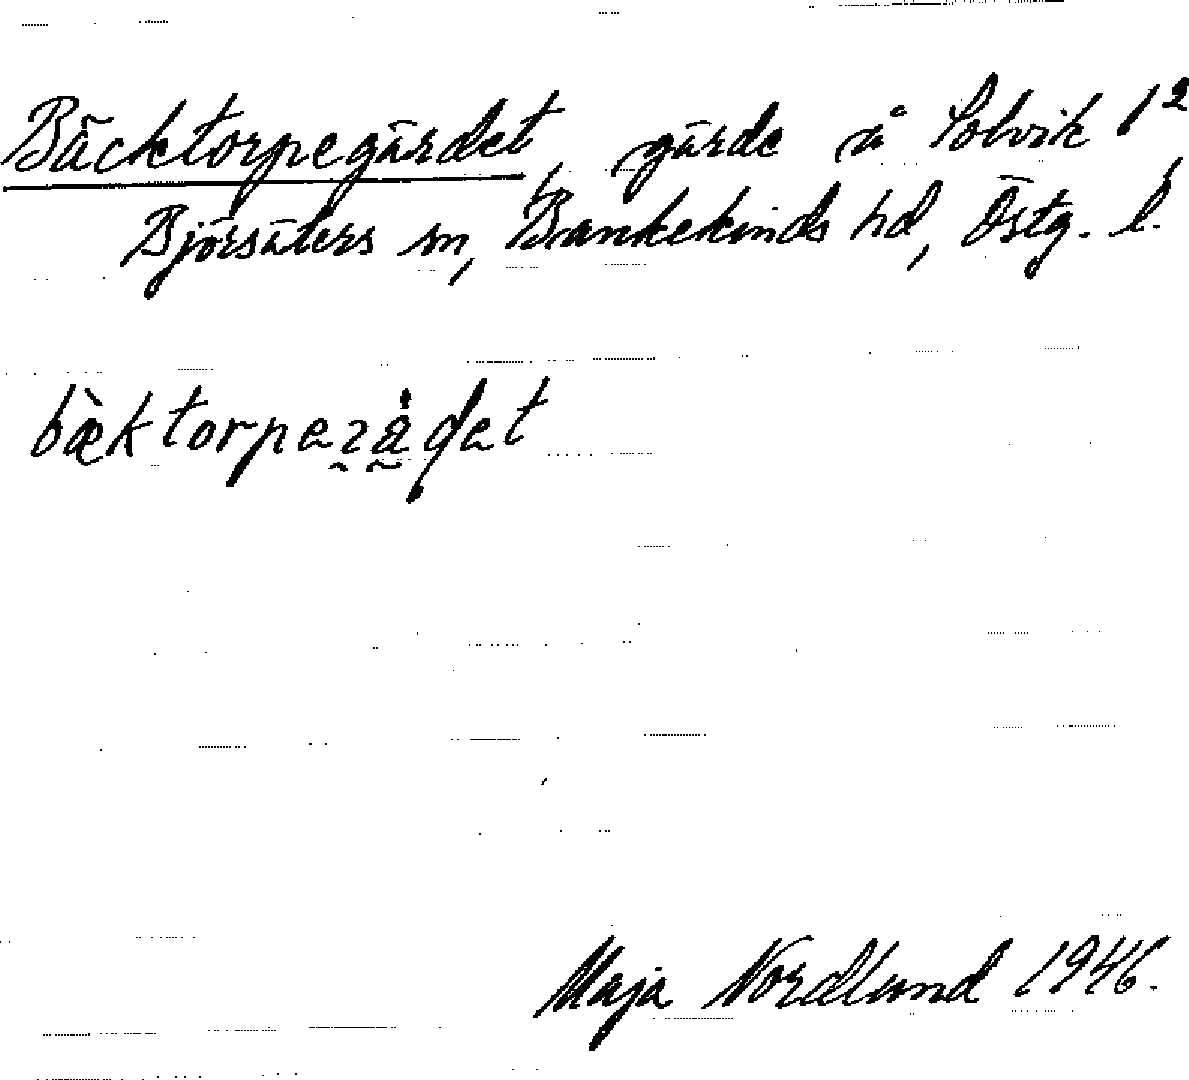 Bäcktorpegärdet, gärde å Solvik 1²,
Björsäters sn, Bankekinds hd, Östg. l.
Maja Nordlund 1946.